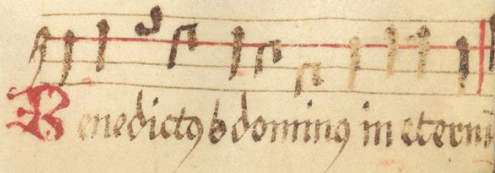 Benedictꝰ b dominꝰ in etern